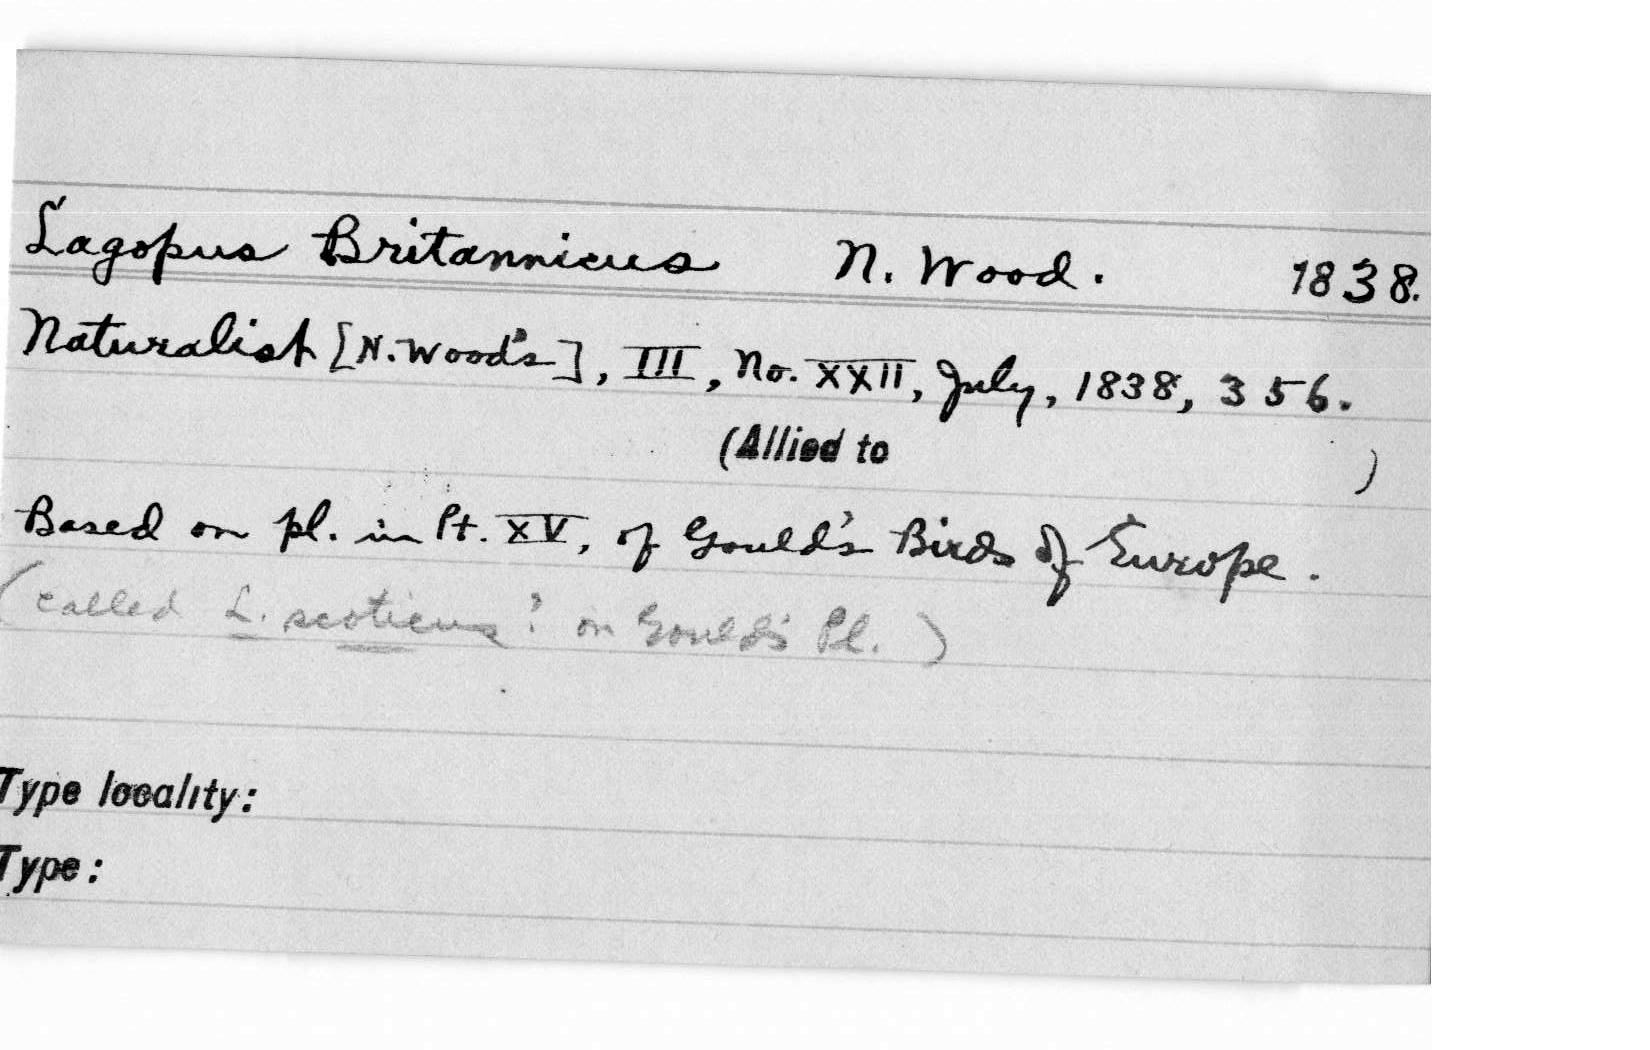 Lagopus Britannicus N. Wood. 1838.
Naturalist [N. Wood's], III, No. XXII, July, 1838, 356.
(Allied to )
Based on pl. in Pt. XV, of Gould's Birds of Europe.
(called L. scoticus! on Gould's Pl.)
Type locality:
Type: